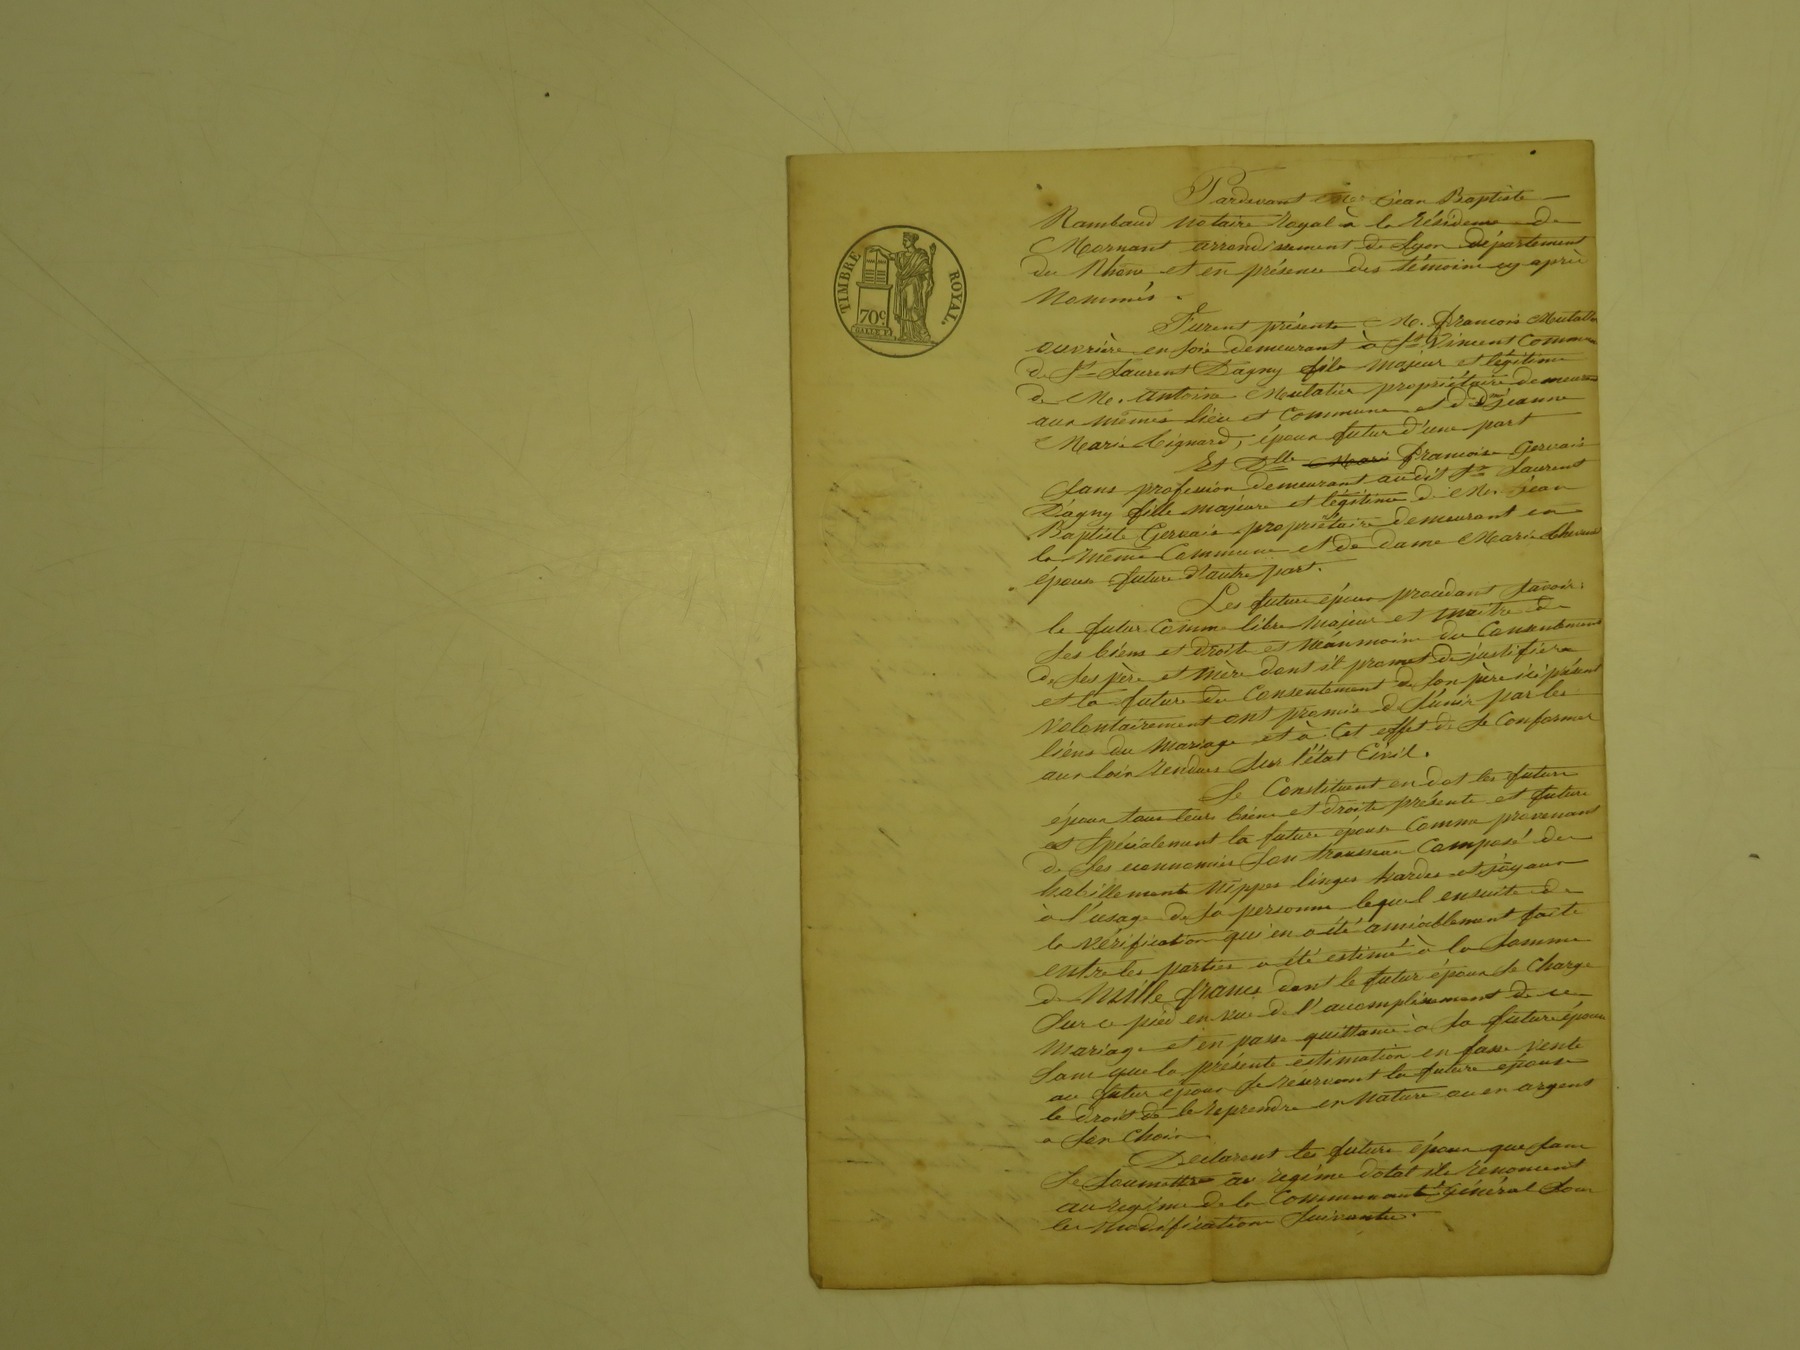 TIMBRE ROYAL.
70c
Pardevant Me Jean Baptiste
Rambaud Notaire Royal à la résidence de
Mornant arrondissement de Lyon département
du Rhône et en présence des témoins cy après
Nommés.
Furent présents M. François
ouvrière en soie demeurant à St Vincent Commune
de St Laurent Dagny fils majeur et légitime
de M. Antoine propriétaire demeurant
aux mêmes lieu et Commune et de De Jeanne
Marie époux futur d'une part
Et Dlle Marie Françoise Gervais
Sans profession demeurant audit St Laurent
Dagny fille majeure et légitime de M. Jean
Baptiste Gervais propriétaire demeurant en
la même Commune et de dame Marie
épouse future d'autre part.
Les futurs époux procédant Savoir:
le futur Comme libre majeur et maitre de
Ses biens et droits et néanmoins du Consentement
de Ses père et mère dont il promet de justifier
et la future du Consentement de Son père ici présent
Volontairement ont promis de S'unir par les
liens du Mariage et à Cet effet de Se Conformer
aux loix rendues Sur l'état Civil.
Se Constituent en dot les futurs
époux tous leurs biens et droits présents et futurs
et Spécialement la future épouse Comme provenant
de Ses economies Son trousseau Composé de
habillements Nippes linges hardes et joyaux
à l'usage de Sa personne lequel ensuite de
la vérification qui en a été amiablement faite
entre les parties a été estimé à la Somme
de Mille francs dont le futur époux Se Charge
Sur ce pied en vue de l'accomplissement de ce
Mariage et en passe quittance à Sa future épouse
Sans que la présente estimation en fasse vente
au futur époux Se reservant la future épouse
le droit de le reprendre en Nature ou en argent
a Son Choix.
Déclarent les futurs époux que Sans
Se Soumettre au régime dotal ils renoncent
au régime de la Communauté Général Sous
les modifications Suivantes.